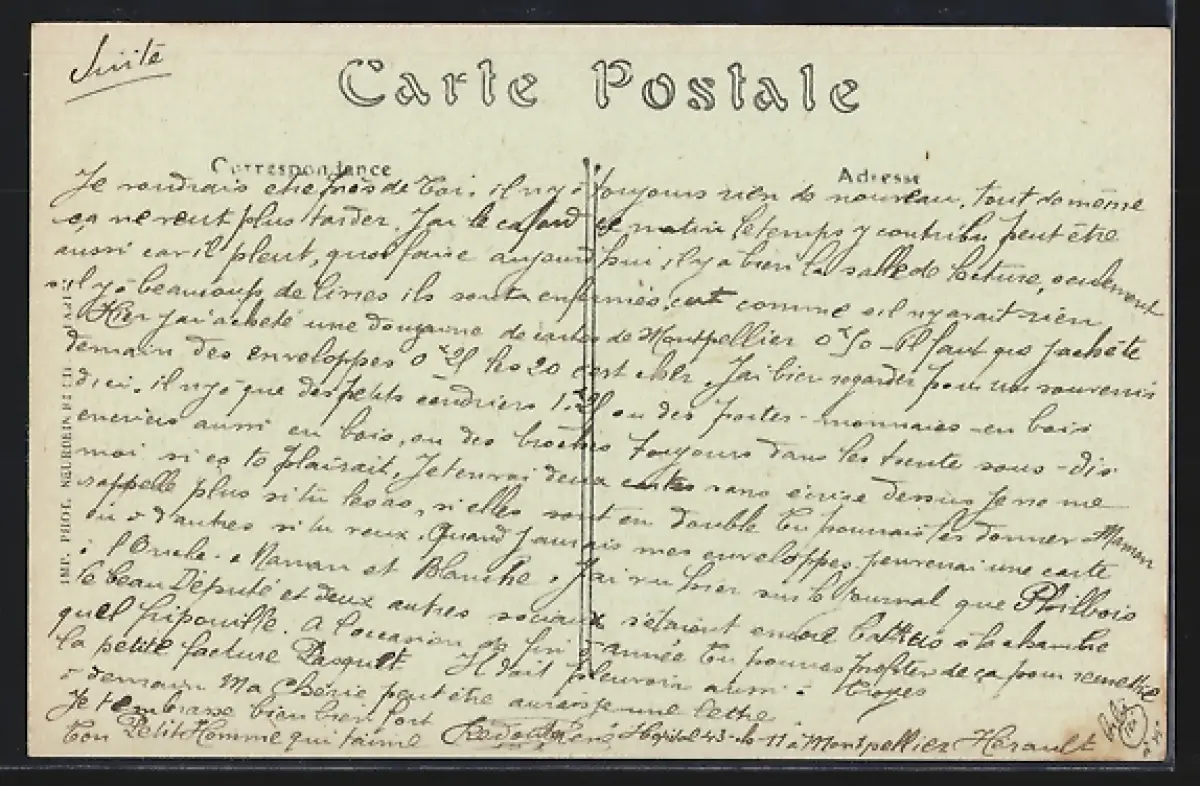 Suite
Carte Postale
Correspondance
Adresse
Je voudrais etre près de Toi, il n'y à toujours rien de nouveau, tout de même
ça ne veut plus tarder. J'ai le cafard ce matin, le temps y contribu peut être
aussi car il pleut, quoi faire aujourd'hui, il y a bien la salle de lecture, seulement
s'il y à beaucoups de livres ils sont enfermés, c'est comme s'il n'y avait rien
Hier j'ai acheté une douzaine de cartes de Montpellier 0x50 - Il faut que j'achète
demain des enveloppes 0x25 les 20 c'est cher. J'ai bien regarder pour un souvenir
d'ici, il n'y à que des petits cendriers 1x25 ou des portes-monnaies en bois
encriers aussi en bois, ou des broches toujours dans les trente sous - dis
moi si ça te plairait. Je t'enverrai deux cartes sans écrire dessus je ne me
rappelle plus si tu les as, si elles sont en double tu pourrais les donner à Maman
ou à d'autres si tu veux. Quand j'aurais mes enveloppes j'enverrai une carte
à l'Oncle. à Maman et Blanche. J'ai vu hier sur le Journal que Philbois
le beau Député et deux autres sociaux s'étaient encore battus à la chambre
quel fripouille. A l'occasion de fin d'année tu pourras profiter de ça pour remettre
la petite facture Pasquet Il doit pleuvoir aussi à Troyes
à demain Ma Chérie peut être aurais je une lettre
Je t'embrasse bien bien fort
Ton Petit Homme qui t'aime René Hôpital 43 à Montpellier Hérault
IMP. PHOT. NEURDEIN